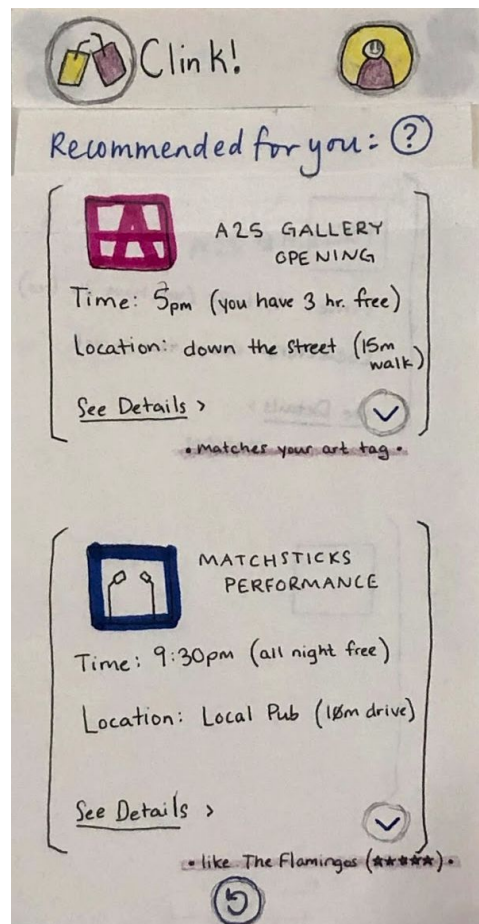 Clink!
Recommended for you: ?
A25 GALLERY
OPENING
Time: 5pm (you have 3 hr. free)
Location: down the street (15m
walk)
See Details >
• matches your art tag •
MATCHSTICKS
PERFORMANCE
Time: 9:30pm (all night free)
Location: Local Pub (10m drive)
See Details >
• like The Flamingos (★★★★★) •